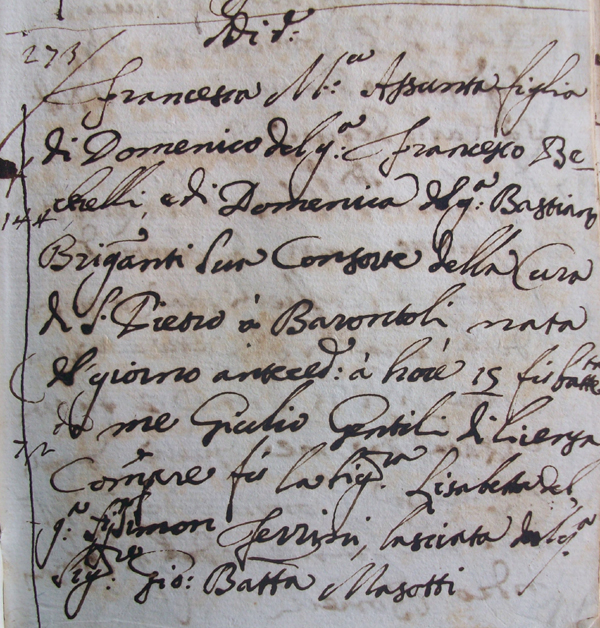 Adi d.º
273
Francesca M.ª Assunta figlia
di Domenico del q.ª Francesco Be=
chelli, e di Domenica del q.ª Bastiano
144
Briganti sua Consorte della Cura
di S. Pietro à Barontoli nata
il giorno anteced: à hore 15 fù batt.ta
da me Giulio Gentili di licenza
72
Compre fù la Sig.ra Lisabetta del
q.ª Simon Ferrini, lasciata del q.ª
Sig.re Gio: Batta Masotti